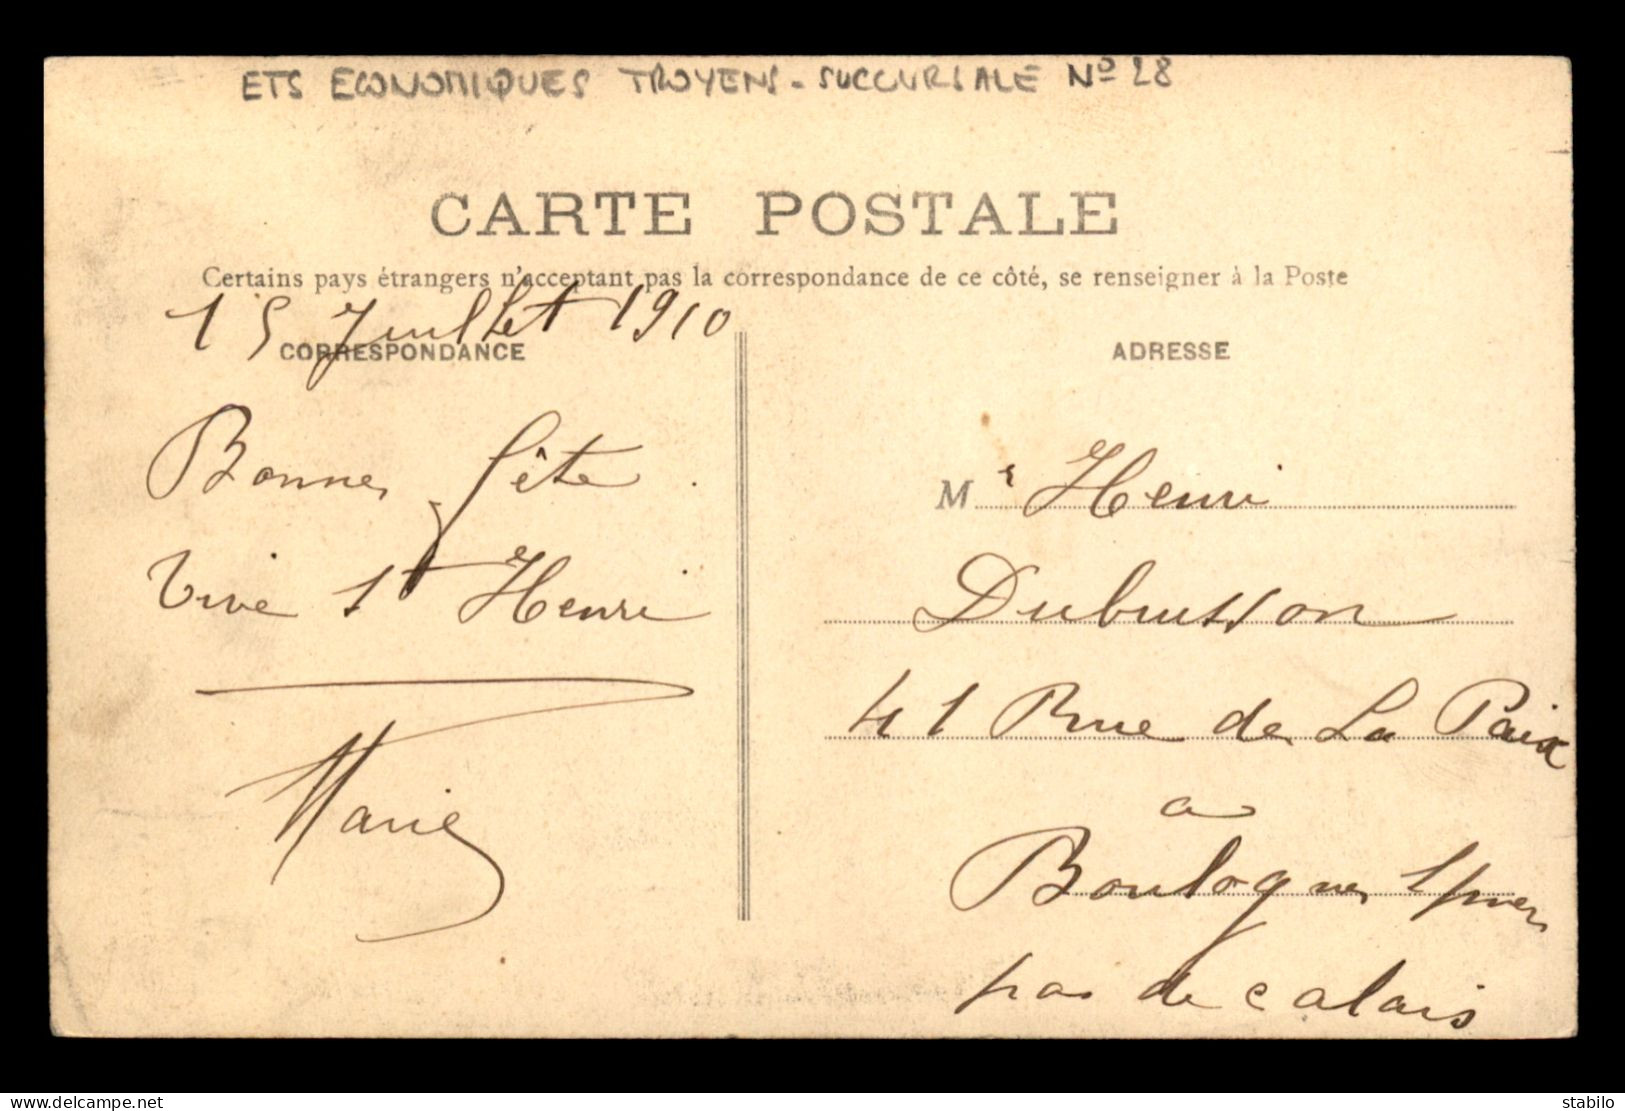 ETS ECONOMIQUES TROYENS - SUCCURSALE Nº 28
CARTE POSTALE
Certains pays étrangers n'acceptant pas la correspondance de ce côté, se renseigner à la Poste
15 Juillet 1910
CORRESPONDANCE
Bonne fête.
Vive St Henri
Marie
ADRESSE
Mr Henri
Dubuisson
41 Rue de La Paix
a
Boulogne s/mer
pas de calais
www.delcampe.net
stabilo